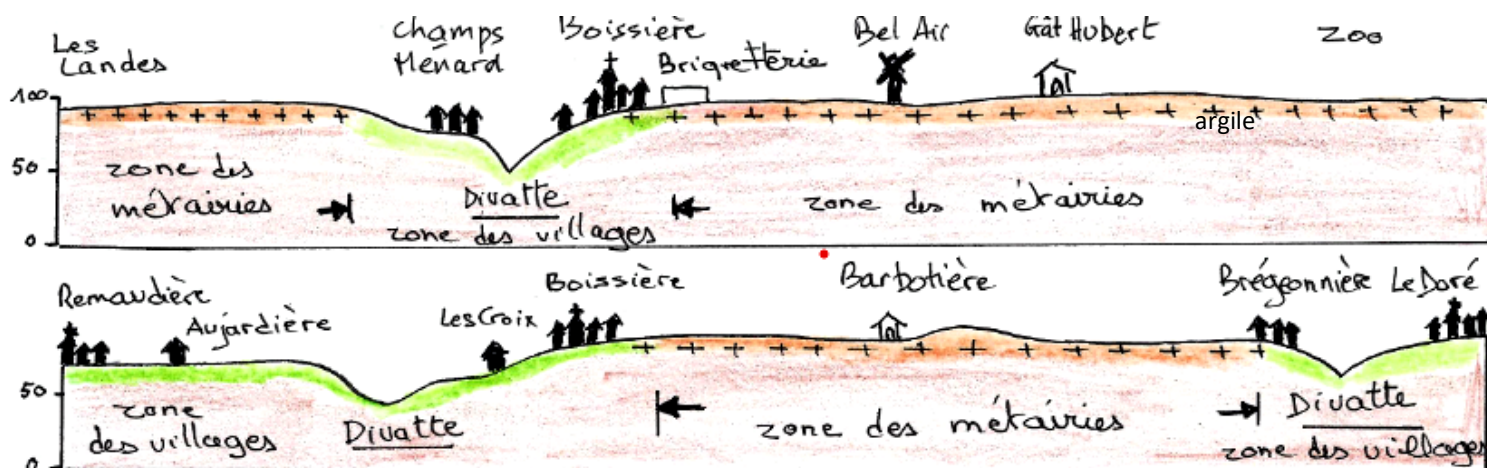 Les
Landes
Champs
Ménard
Boissière
Briquetterie
Bel Air
Gât Hubert
Zoo
100
argile
50
zone des
métairies
Divatte
zone des villages
zone des métairies
0
Remaudière
Aujardière
Les Croix
Boissière
Barbotière
Brégeonnière
Le Doré
50
zone
des villages
Divatte
zone des métairies
Divatte
zone des villages
0